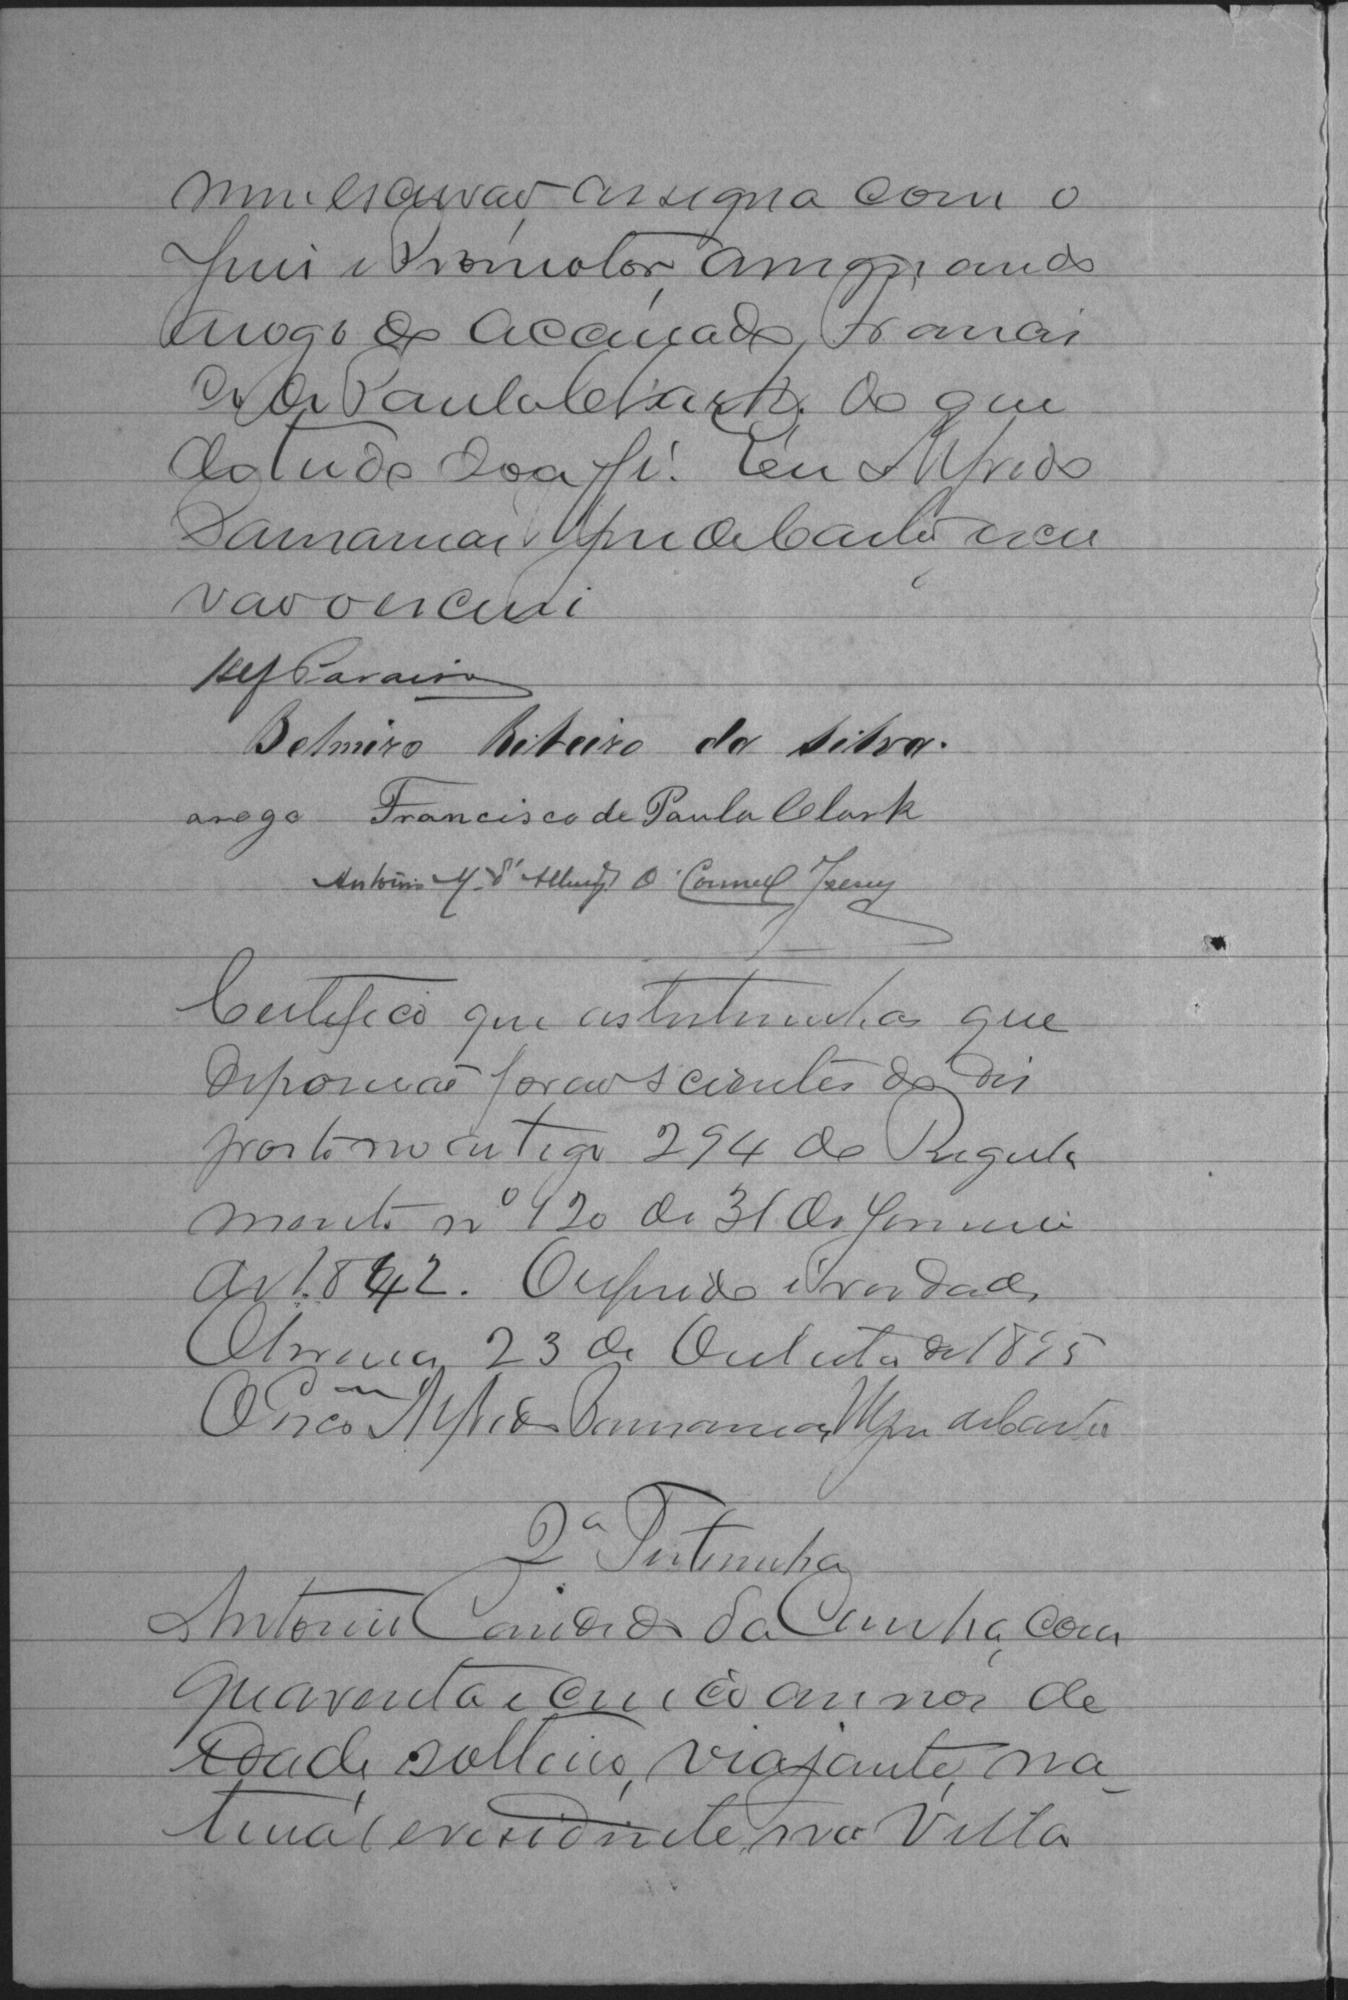 mim escrivão, assigna com o
Juis e Promotor, assignando
arogo do accusado, Francis
co de Paula Clark. do que
de tudo dou fé. Eu Alfredo
de Castro escri
vão o escrevi
Belmiro Ribeiro da Silva.
arogo Francisco de Paula Clark
Antonio M. d' O' Connell Jersey
Certifico que as testemunhas que
deposerão forão scientes do dis
posto no artigo 294 do Regula
mento nº 120 de 31 de Janeiro
de 1.842. O referido é verdade
23 de Outubro de 1895
O Escᵃᵐ Alfredo de Castro
2ª Testemunha
Antonio Candido da Cunha, com
quarenta e cinco annos de
edade, solteiro, viajante, na
tural e residente na Villa